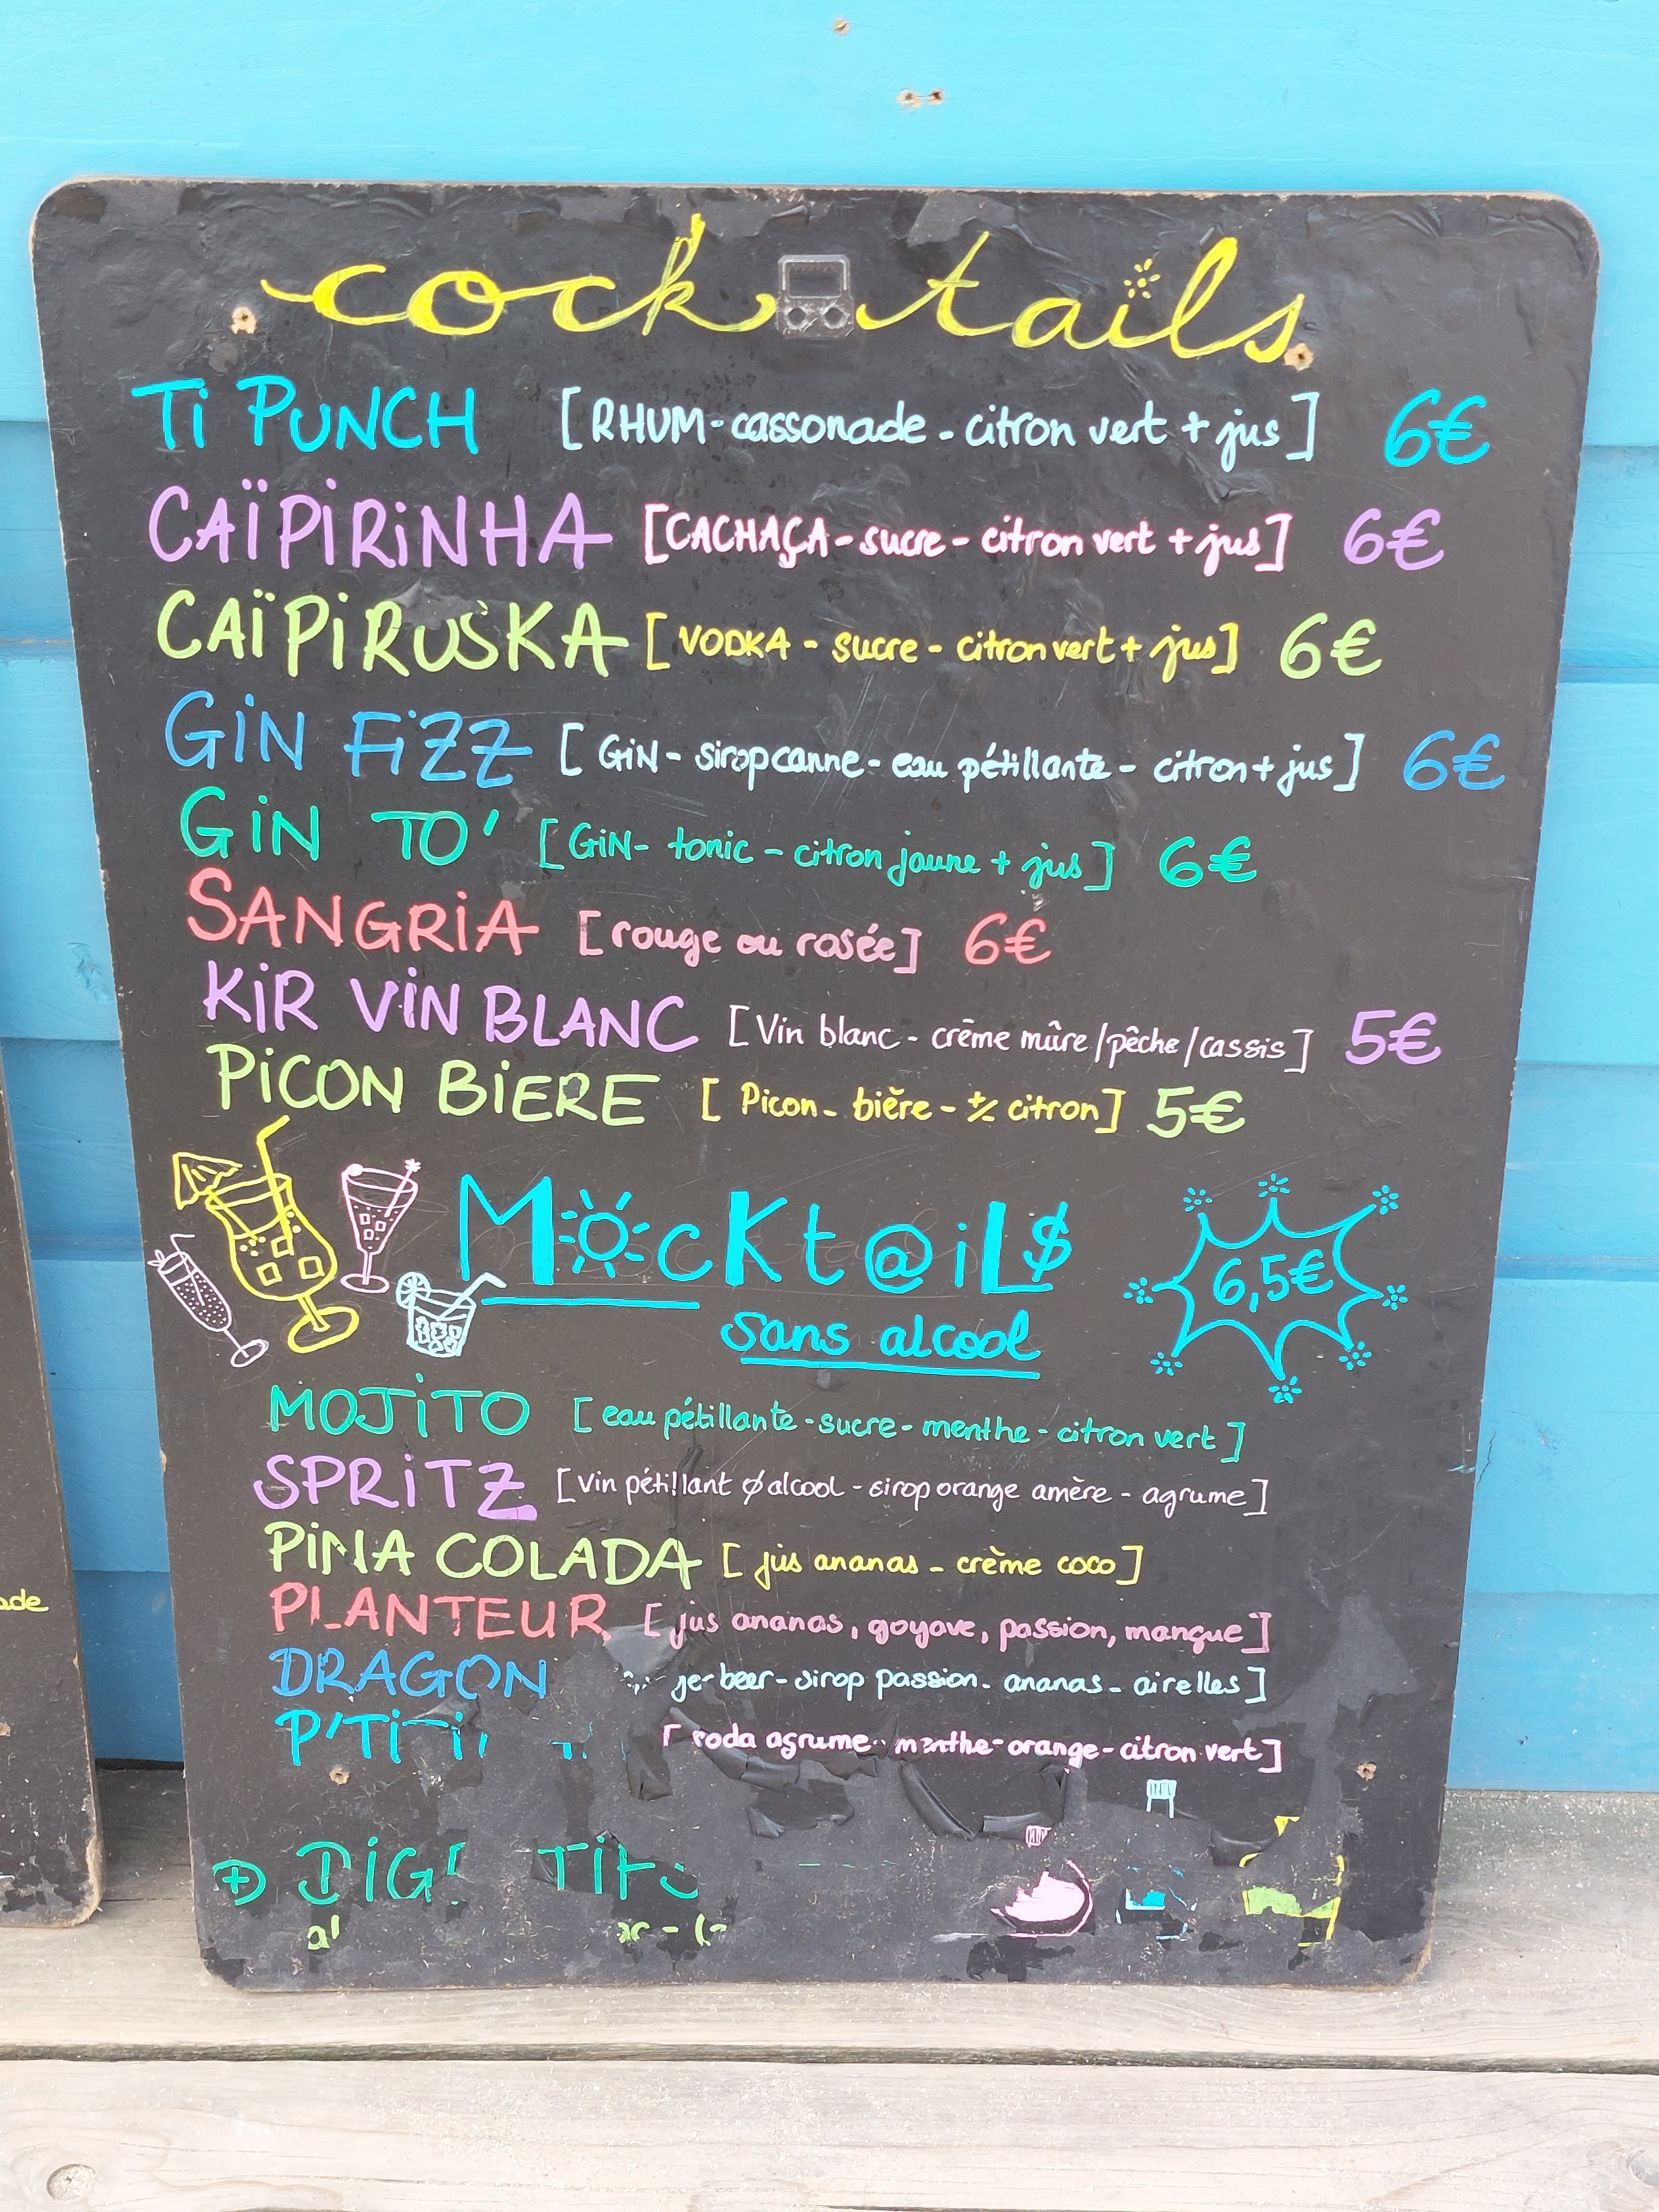 cocktails
Ti PUNCH [RHUM-cassonade-citron vert + jus] 6€
CAÏPIRINHA [CACHAÇA-sucre-citron vert + jus] 6€
CAÏPIRUSKA [VODKA - sucre - citron vert + jus] 6€
GIN FIZZ [GIN- sirop canne- eau pétillante - citron + jus] 6€
GIN TO' [GIN- tonic - citron jaune + jus] 6€
SANGRIA [rouge ou rosée] 6€
KIR VIN BLANC [Vin blanc - crème mûre/pêche/cassis] 5€
PICON BIERE [Picon- bière - +/- citron] 5€
Mocktails 6,5€
sans alcool
MOJITO [eau pétillante-sucre-menthe-citron vert]
SPRITZ [Vin pétillant ø alcool - sirop orange amère - agrume]
PINA COLADA [jus ananas - crème coco]
PLANTEUR [jus ananas, goyave, passion, mangue]
DRAGON beer-sirop passion- ananas- airelles]
P'Ti [soda agrume- menthe-orange-citron vert]
ade